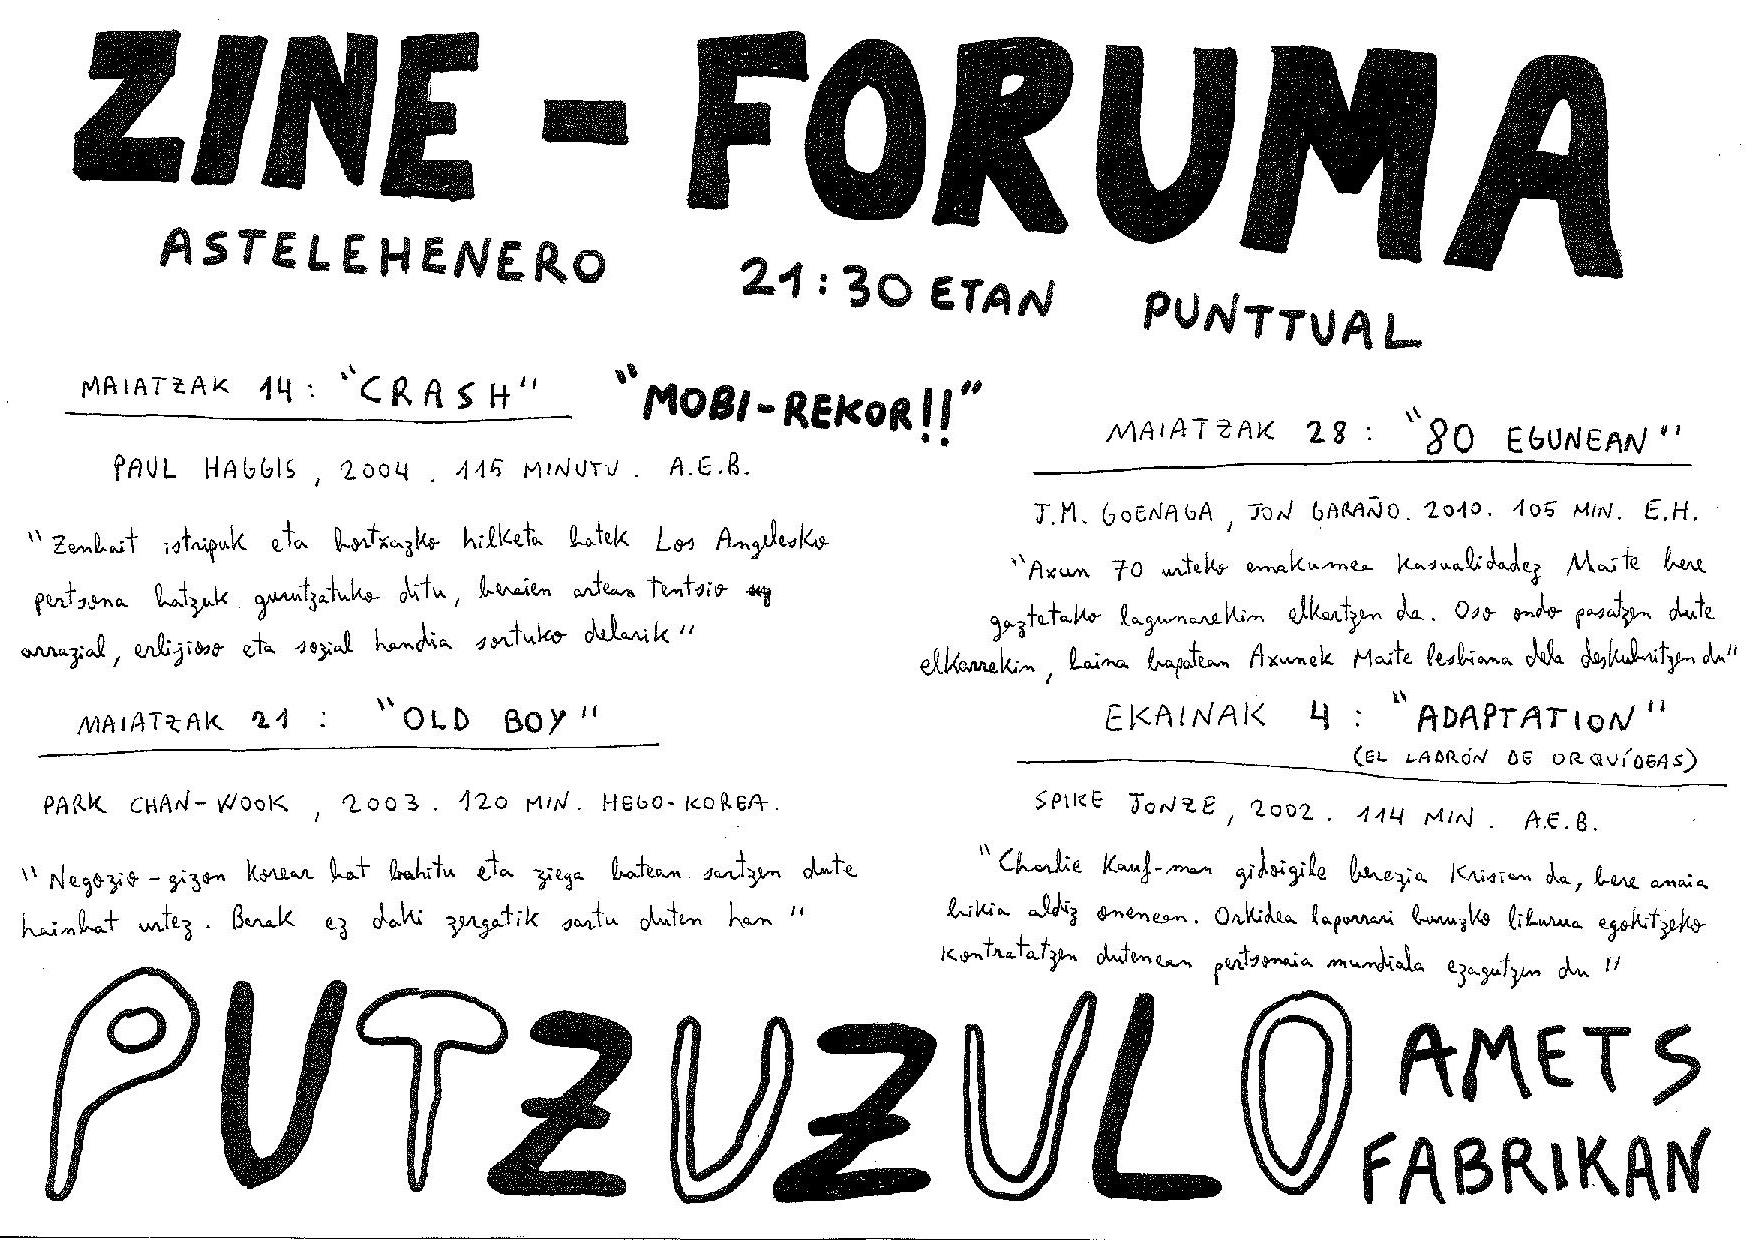 ZINE - FORUMA
ASTELEHENERO 21:30 ETAN PUNTTUAL
MAIATZAK 14: "CRASH" "MOBI-REKOR!!"
PAUL HAGGIS, 2004. 115 MINUTU. A.E.B.
"Zenbait istripuk eta bortxazko hilketa batek Los Angelesko
pertsona batzuk gurutzatuko ditu, beraien artean tentsio
arrazial, erlijioso eta sozial handia sortuko delarik"
MAIATZAK 21: "OLD BOY"
PARK CHAN-WOOK, 2003. 120 MIN. HEGO-KOREA.
"Negozio-gizon korear bat bahitu eta ziega batean sartzen dute
hainbat urtez. Berak ez daki zergatik sartu duten han"
MAIATZAK 28: "80 EGUNEAN"
J.M. GOENAGA, JON GARAÑO. 2010. 105 MIN. E.H.
"Axun 70 urteko emakumea kasualidadez Maite bere
gaztetako lagunarekin elkartzen da. Oso ondo pasatzen dute
elkarrekin, baina bapatean Axunek Maite lesbiana dela deskubritzen du"
EKAINAK 4: "ADAPTATION"
(EL LADRÓN DE ORQUÍDEAS)
SPIKE JONZE, 2002. 114 MIN. A.E.B.
"Charlie Kauf-man gidoigile berezia krisian da, bere anaia
bikia aldiz onenean. Orkidea lapurrari buruzko liburua egokitzeko
kontratatzen dutenean pertsonaia mundiala ezagutzen du"
PUTZUZULO AMETS
FABRIKAN